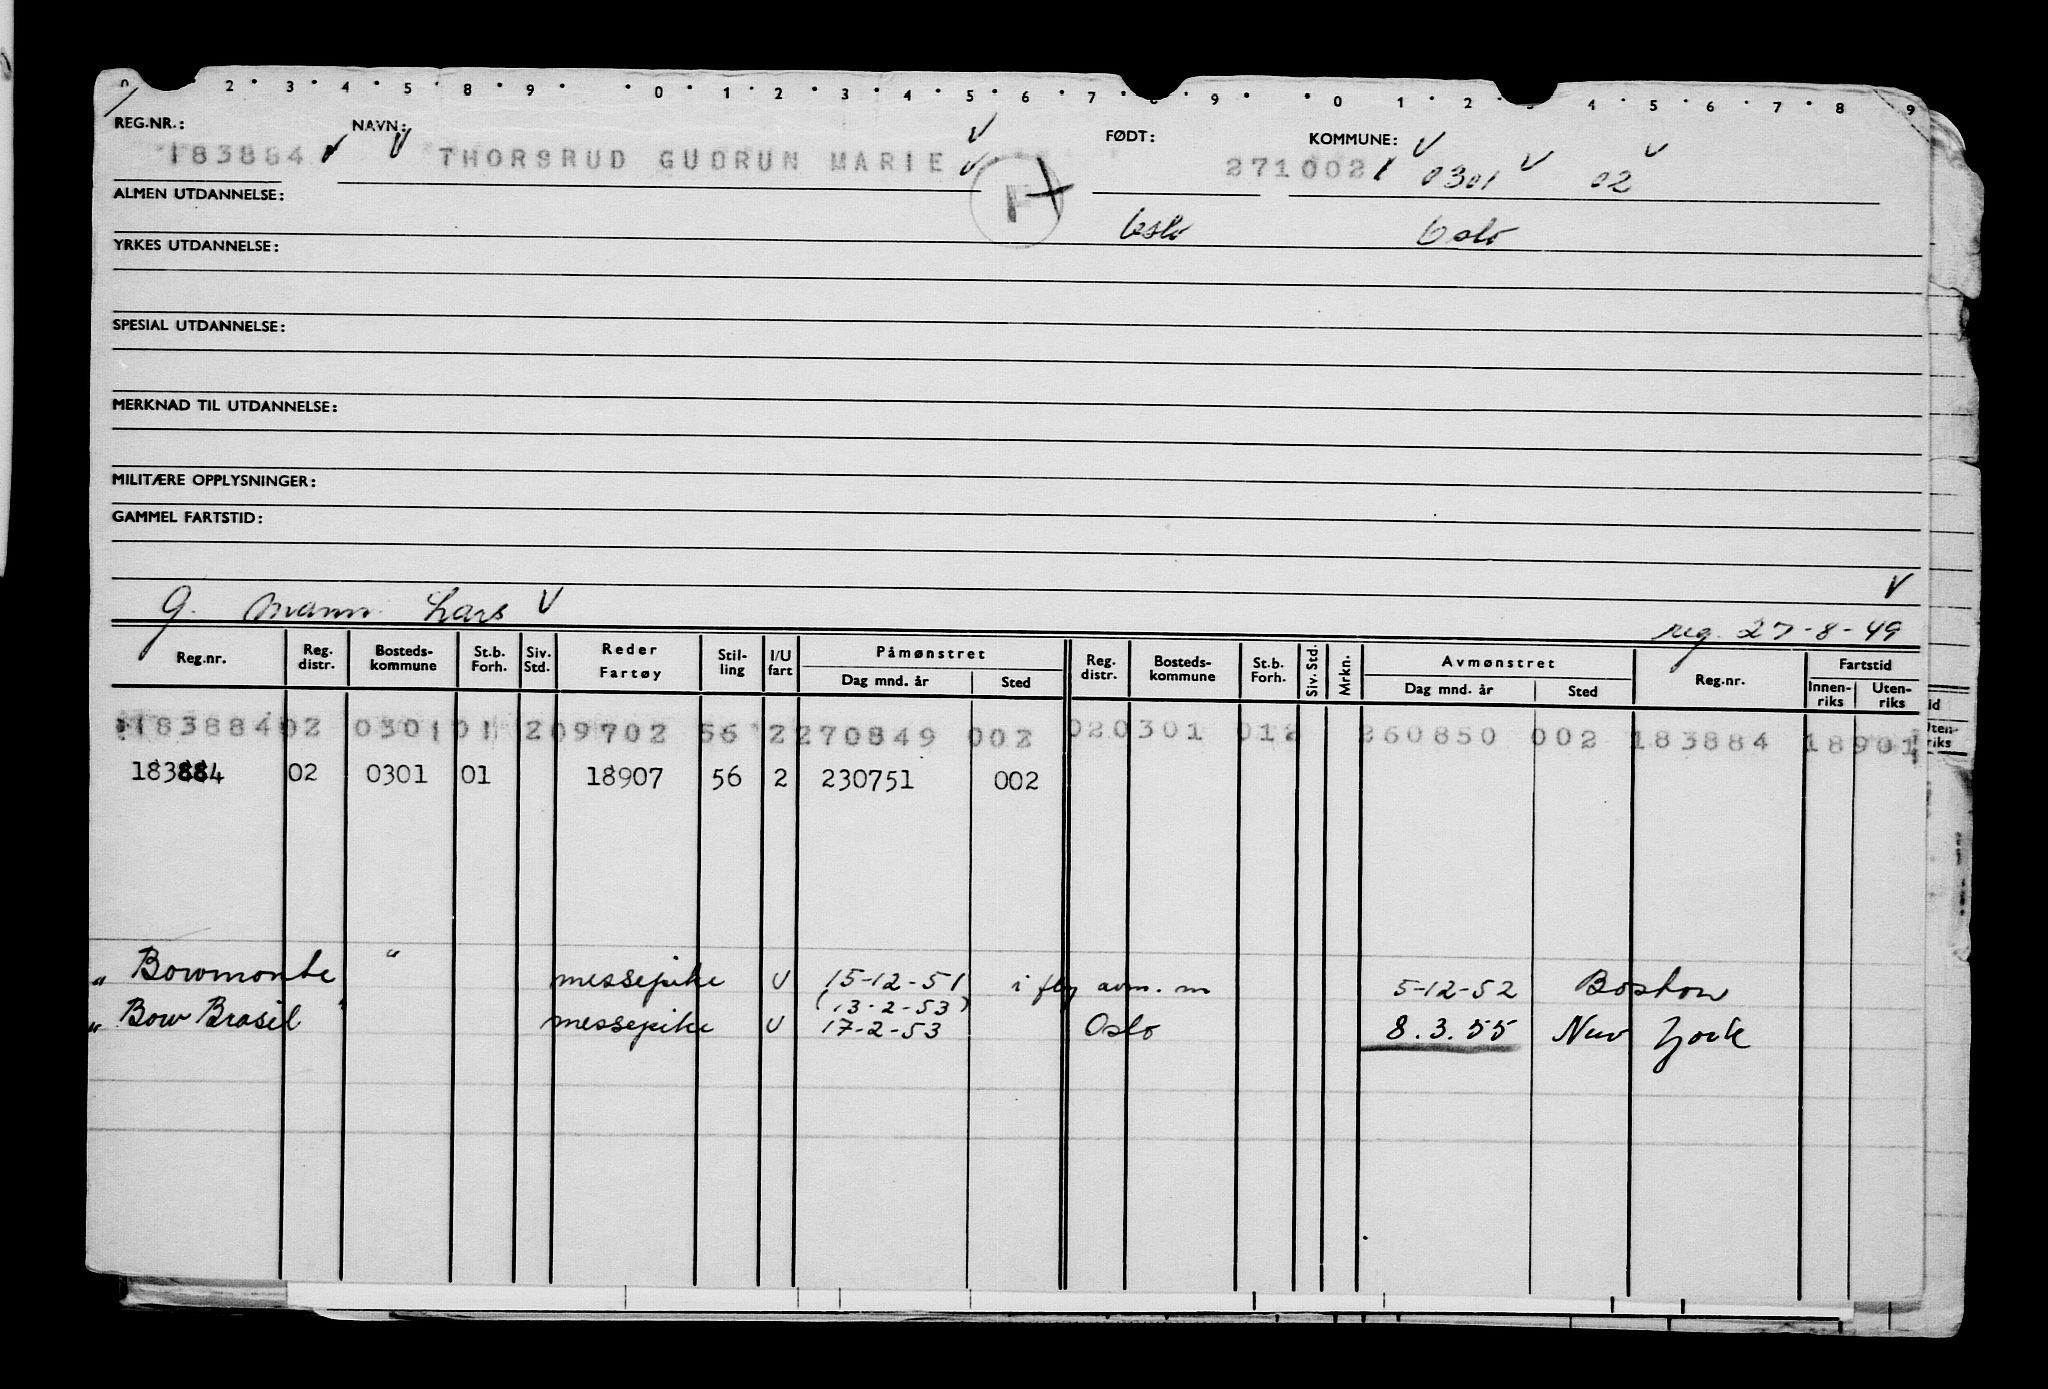 0 2 · 3 · 4 · 5 · 8 · 9 · · 0 · 1 · 2 · 3 · 4 · 5 · 6 · 7 · 8 · 9 · · 0 1 · 2 · 3 4 · 5 · 6 · 7 · 8 9
REG.NR.: NAVN: FØDT: KOMMUNE:
183884 THORSRUD GUDRUN MARIE 271002 0301 02
F
ALMEN UTDANNELSE:
Oslo Oslo
YRKES UTDANNELSE:
SPESIAL UTDANNELSE:
MERKNAD TIL UTDANNELSE:
MILITÆRE OPPLYSNINGER:
GAMMEL FARTSTID:
g. mann. Lars V
reg. 27-8-49
Reg.nr. Reg. distr. Bosteds-kommune St.b. Forh. Siv. Std. Reder Fartøy Stil-ling I/U fart Påmønstret Dag mnd. år Sted Reg. distr. Bosteds-kommune St.b. Forh. Siv. Std. Mrkn. Avmønstret Dag mnd. år Sted Reg.nr. Fartstid Innen-riks Uten-riks
183884 02 0301 01 2 09702 56 2 270849 002 02 0301 012 260850 002 183884 18901
183884 02 0301 01 18907 56 2 230751 002
" Bowmonte " messepike U 15-12-51 i fly avm. m 5-12-52 Boston
(13-2-53)
" Bow Brasil " messepike U 17-2-53 Oslo 8.3.55 New York